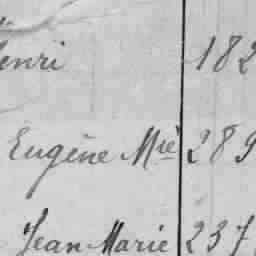 enri 182
Eugène Mie 289
Jean Marie 237